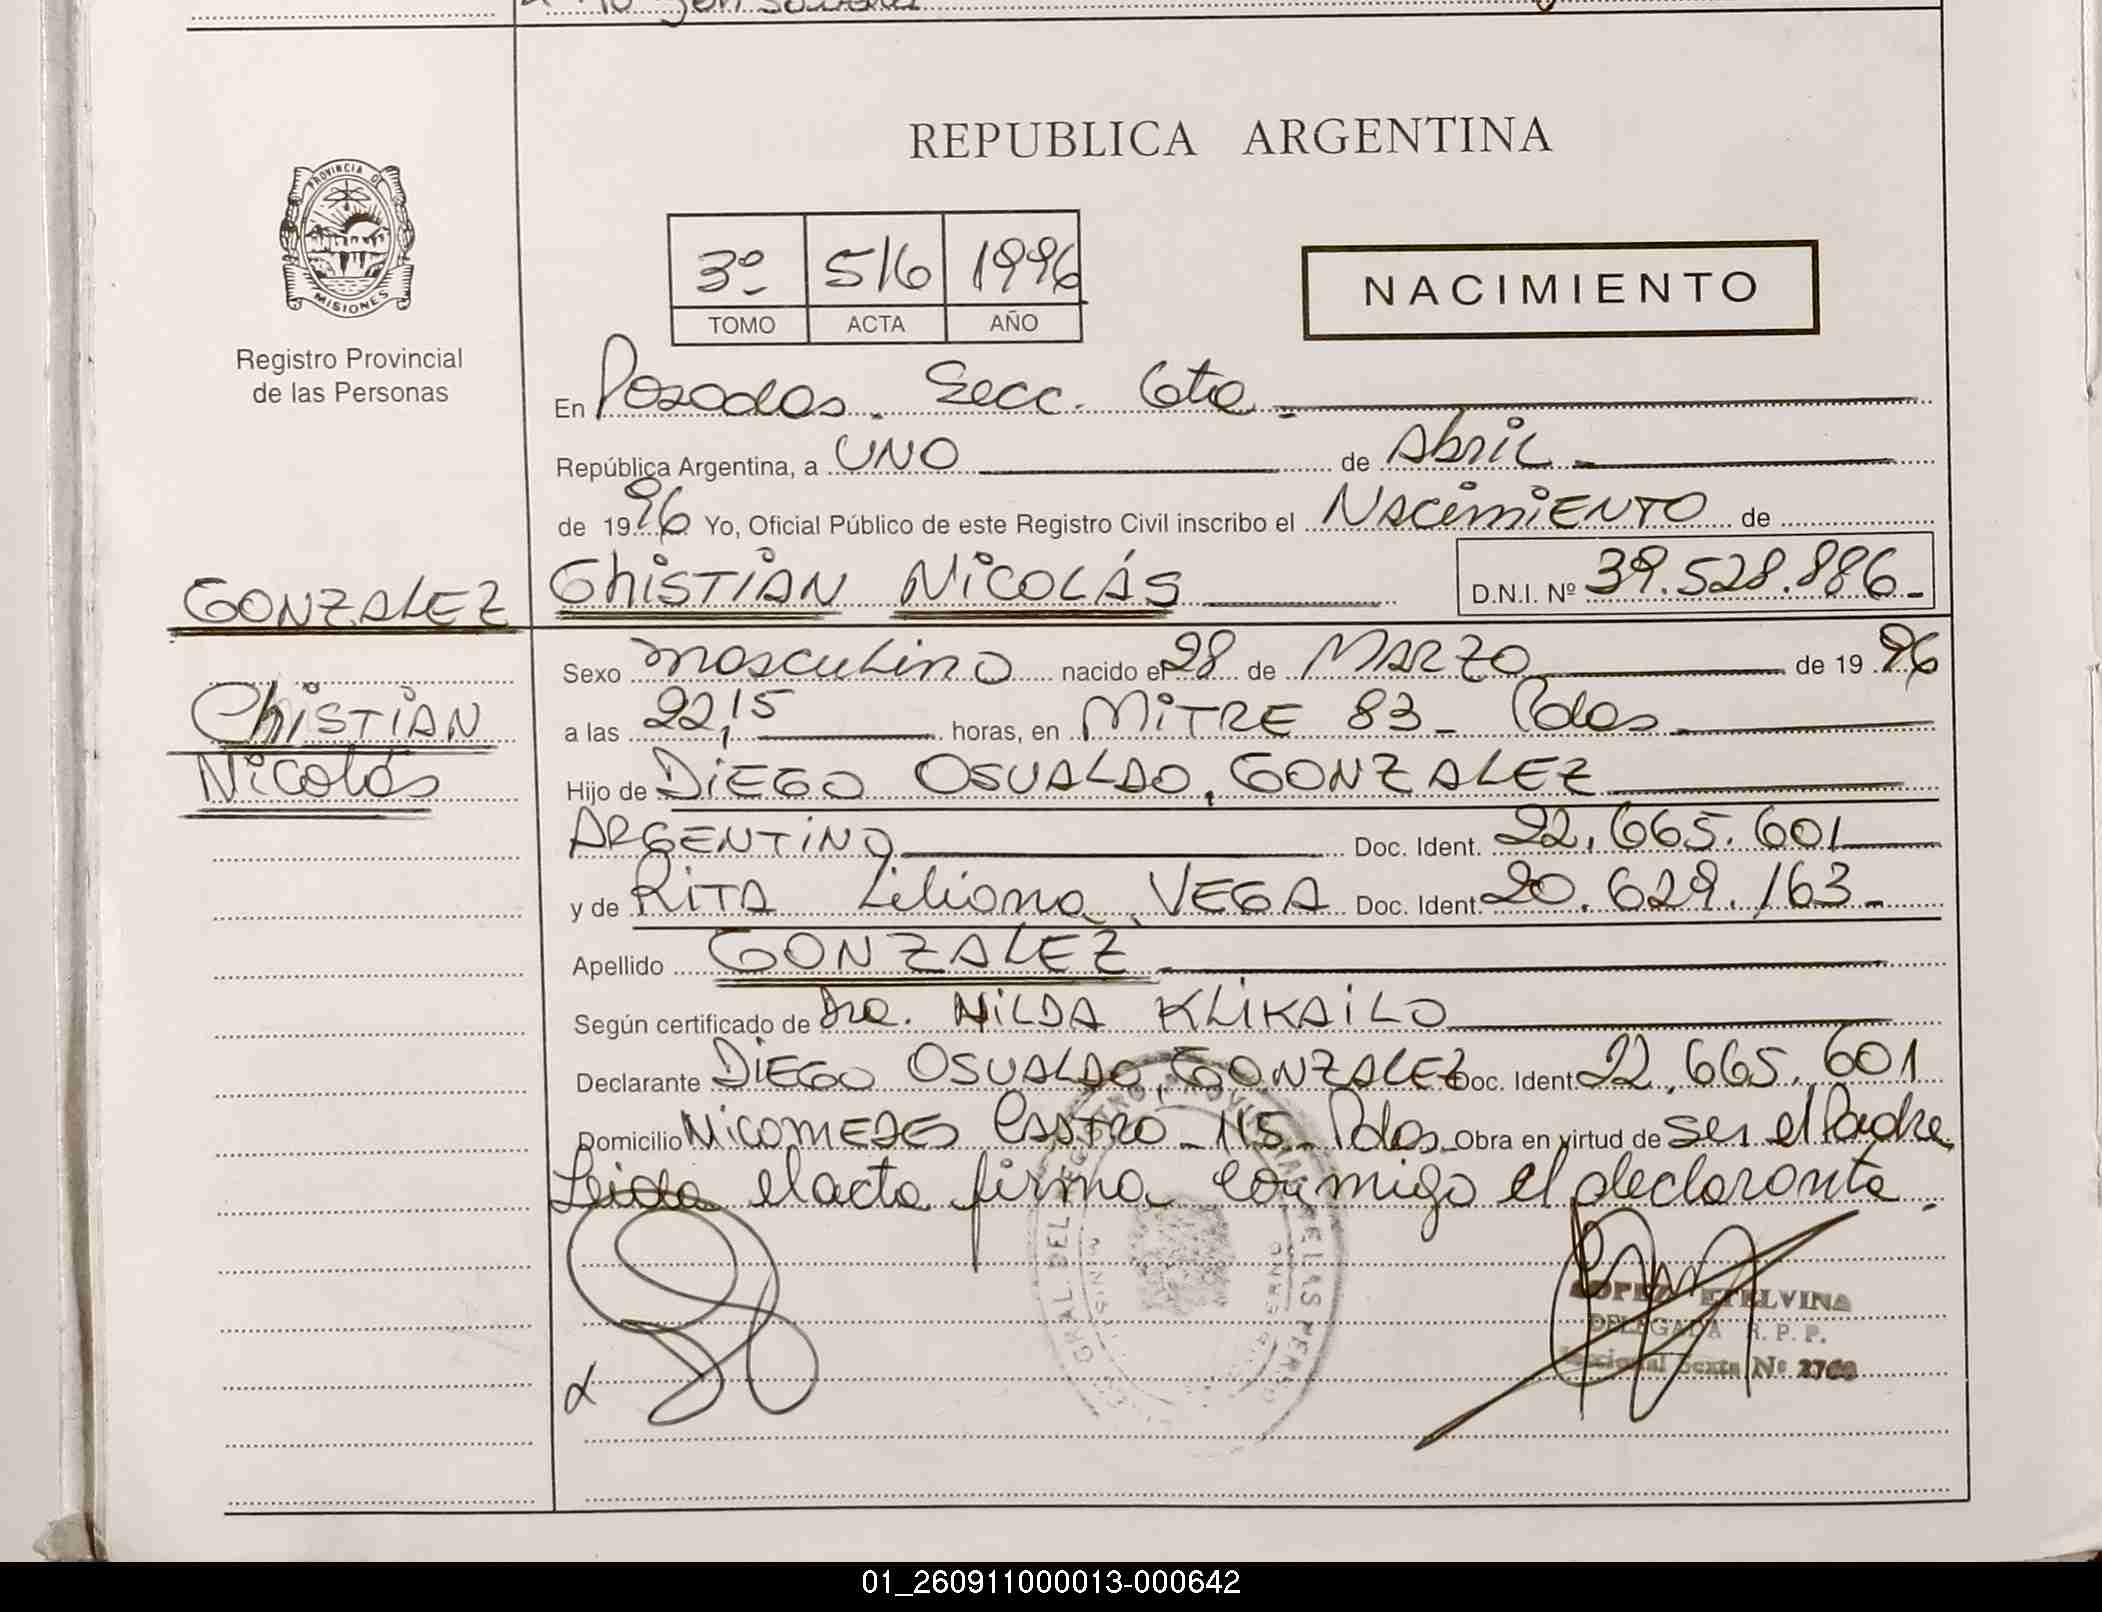 REPUBLICA ARGENTINA
PROVINCIA DE
MISIONES
Registro Provincial
de las Personas
3º 516 1996
TOMO ACTA AÑO
NACIMIENTO
En Posadas. Secc. 6ta
República Argentina, a UNO de Abril
de 1996 Yo, Oficial Público de este Registro Civil inscribo el NACIMIENTO de
GONZALEZ
Chistian
Nicolás
ChiSTIAN NICOLÁS D.N.I. Nº 39.528.886
Sexo masculino nacido el 28 de MARZO de 1996
a las 22,15 horas, en MITRE 83 - Pdas
Hijo de DIEGO OSVALDO, GONZALEZ
ARGENTINO Doc. Ident. 22.665.601
y de RITA Liliana, VEGA Doc. Ident. 20.629.163
Apellido GONZALEZ
Según certificado de Dra. NILDA KLIKAILO
Declarante DIEGO OSVALDO, GONZALEZ Doc. Ident. 22.665.601
Domicilio NICOMEDES CASTRO - 115 - Pdas. Obra en virtud de ser el Padre
Leida el acta firma conmigo el declarante.
LOPEZ ETELVINA
DELEGADA R. P. P.
Seccional Sexta Nº
01_260911000013-000642